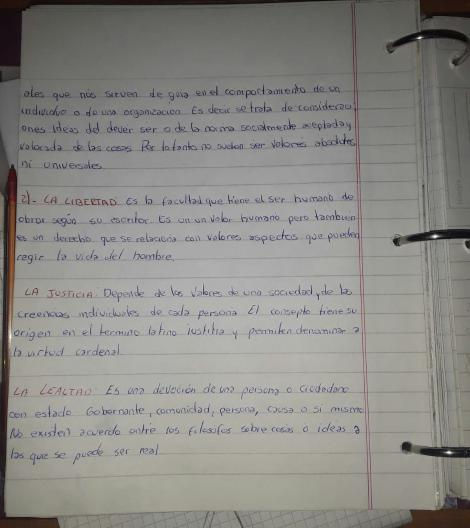 ales que nos sirven de guia en el comportamiento de un
individuo o de una organizacion. Es decir se trata de considerac
iones Ideas del dever ser o de la norma socialmente aceptada y
valorada de las cosas Por lo tanto no suelen ser valores absolutos
ni universales
2)- LA LIBERTAD: Es la facultad que tiene el ser humano de
obrar según su escritor. Es un un valor humano pero tambien
es un derecho que se relaciona con valores aspectos que pueden
regir la vida del hombre.
LA JUSTICIA: Depende de los valores de una sociedad, de las
creencias individuales de cada persona El consepto tiene su
origen en el termino latino iustitia y permiten denominar a
la virtud cardenal.
LA LEALTAD: Es una devoción de una persona o Ciudadano
con estado Gobernante, comunidad, persona, causa o si mismo
No existen acuerdo entre los filosofos sobre cosas o ideas a
las que se puede ser real